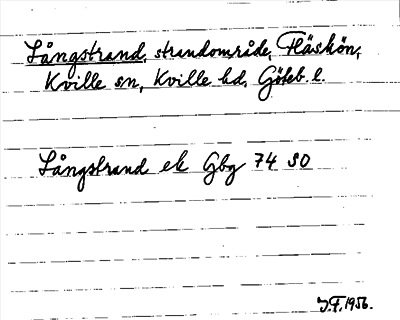 Långstrand, strandområde, Fläskön,
Kville sn, Kville hd, Göteb. l.
Långstrand ek Gbg 74 SO
J.F. 1956.